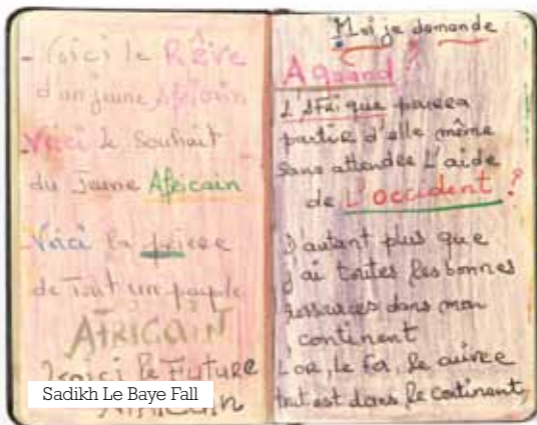 - Voici le Rêve
d'un jeune Africain
Voici le Souhait
du Jeune Africain
Voici la priere
de Tout un peuple
AFRICAIN
Voici le Future
AFRICAIN
Sadikh Le Baye Fall
Moi je demande
A quand ?
L'Afrique
partie d'elle même
sans attendre L'aide
de L'occident ?
D'autant plus que
j'ai toutes les bonnes
ressources dans mon
continent
L'or, le fer, le cuivre
tout est dans le continent,